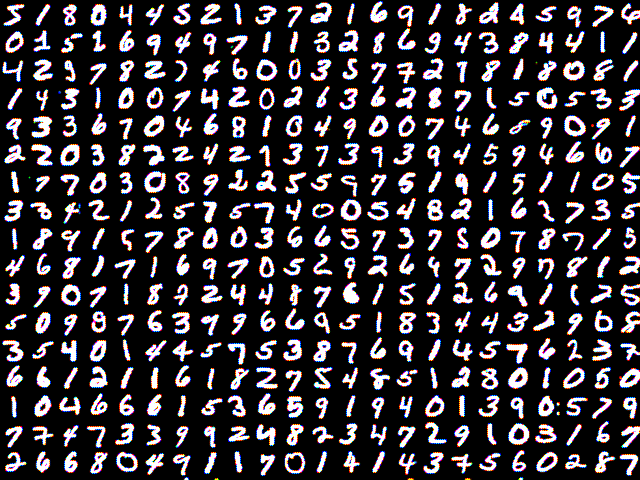 5 1 8 0 4 4 5 2 1 3 7 2 1 6 9 1 8 2 4 5 9 7 4
0 1 5 1 6 9 4 9 7 1 1 3 2 8 6 9 4 3 8 4 4 1 1
4 2 9 7 8 2 7 4 6 0 0 3 5 7 7 2 7 8 1 8 0 8 1
1 4 3 1 0 0 7 4 2 0 2 6 3 6 2 8 7 1 5 0 5 3 3
9 3 3 6 7 0 4 6 8 1 0 4 9 0 0 7 4 6 8 9 0 9 1
2 2 0 3 8 2 2 4 2 1 3 7 3 9 3 9 4 5 9 4 6 6 7
1 7 7 0 3 0 8 9 2 2 5 5 9 7 5 1 9 1 5 1 1 0 5
3 3 4 2 1 2 5 7 5 7 4 0 0 5 4 8 2 1 6 2 7 3 5
1 8 9 1 5 7 8 0 0 3 6 6 5 7 3 7 5 0 7 8 7 1 5
4 6 8 1 7 1 6 9 7 0 5 2 9 2 6 9 7 2 9 7 8 1 2
3 9 0 7 1 8 7 2 4 4 8 7 6 1 5 1 2 6 9 1 1 2 5
5 0 9 8 7 6 3 9 9 6 6 9 5 1 8 3 4 4 3 2 9 6 8
3 5 4 0 1 4 4 5 7 5 3 8 7 6 9 1 4 5 7 6 2 3 7
6 6 1 2 1 1 6 1 8 2 7 5 4 8 5 1 2 8 0 1 0 5 0
1 0 4 6 6 6 1 5 3 6 5 9 1 9 4 0 1 3 9 0 5 7 9
7 7 4 7 3 3 9 9 2 4 8 2 3 4 7 2 9 1 0 3 1 6 7
2 6 6 8 0 4 9 1 1 7 0 1 4 1 4 3 7 5 6 0 2 8 7